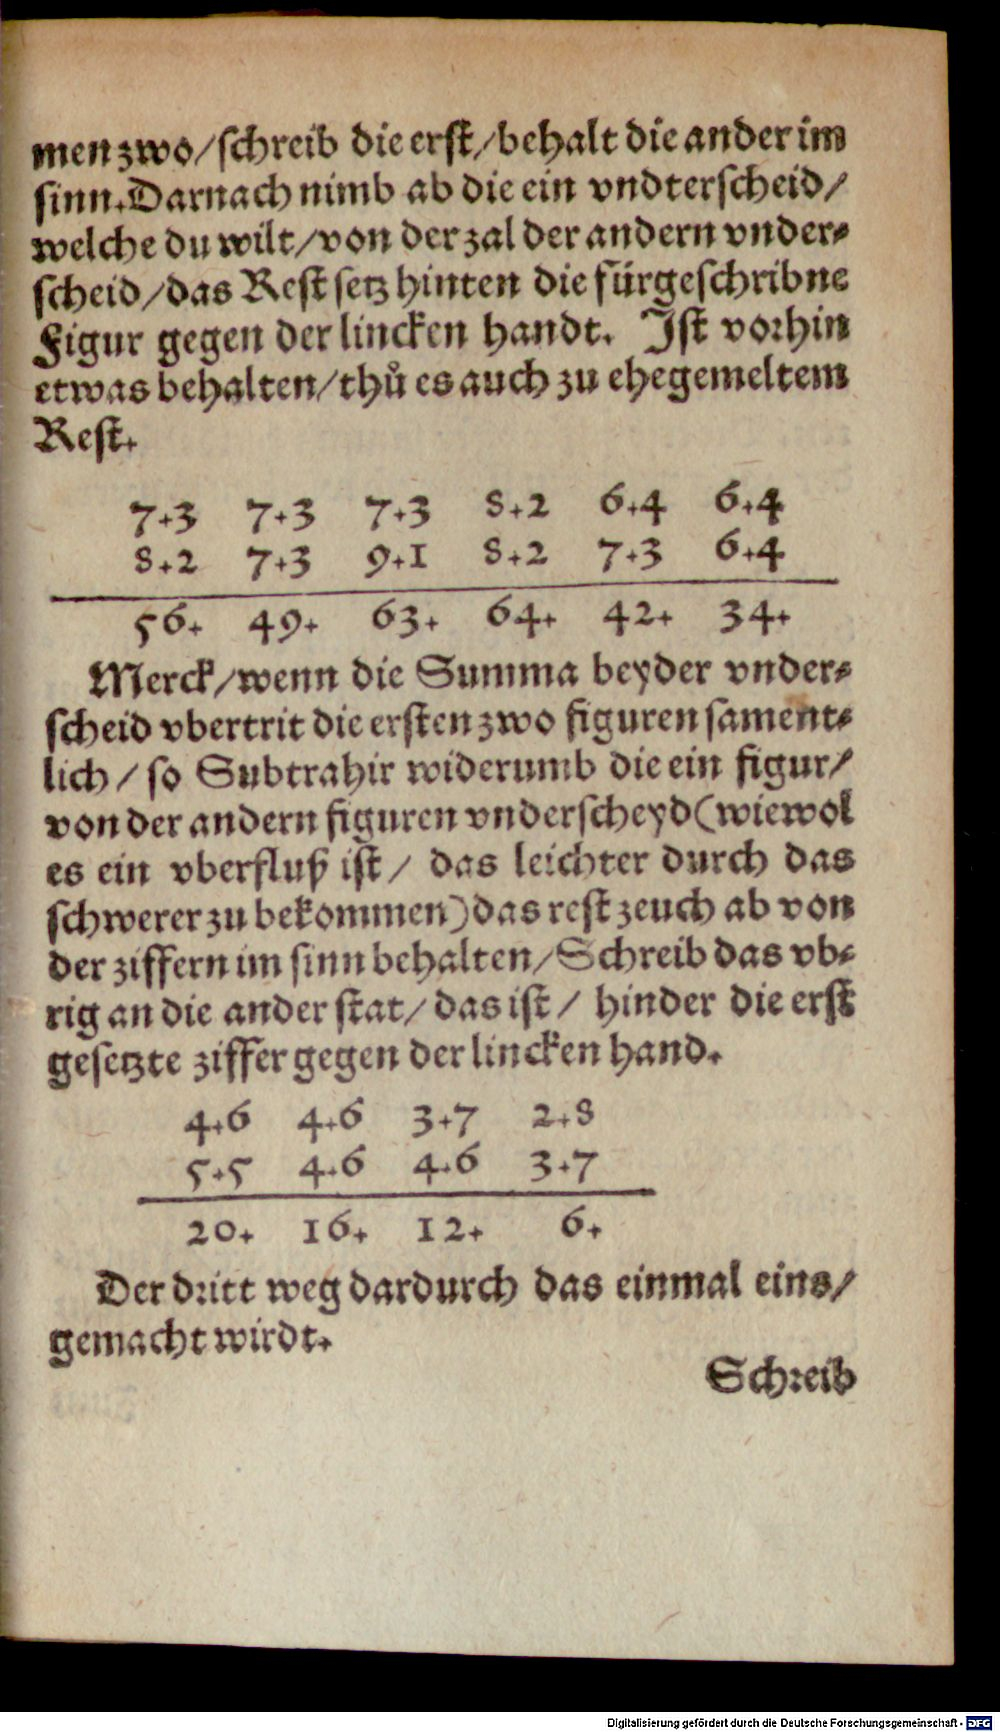 men zwo/schreib die erst/behalt die ander im
sinn.Darnach nimb ab die ein vndterscheid/
welche du wilt/von der zal der andern vnder-
scheid/das Rest setz hinten die fürgeschribne
Figur gegen der lincken handt. Ist vorhin
etwas behalten/thů es auch zu ehegemeltem
Rest.
7.3 7.3 7.3 8.2 6.4 6.4
8.2 7.3 9.1 8.2 7.3 6.4
56. 49. 63. 64. 42. 34.
Merck/wenn die Summa beyder vnder-
scheid vbertrit die ersten zwo figuren sament-
lich/ so Subtrahir widerumb die ein figur/
von der andern figuren vnderscheyd(wiewol
es ein vberfluß ist/ das leichter durch das
schwerer zu bekommen)das rest zeuch ab von
der ziffern im sinn behalten/Schreib das vb-
rig an die ander stat/das ist/ hinder die erst
gesetzte ziffer gegen der lincken hand.
4.6 4.6 3.7 2.8
5.5 4.6 4.6 3.7
20. 16. 12. 6.
Der dritt weg dardurch das einmal eins/
gemacht wirdt.
Schreib
Digitalisierung gefördert durch die Deutsche Forschungsgemeinschaft - DFG